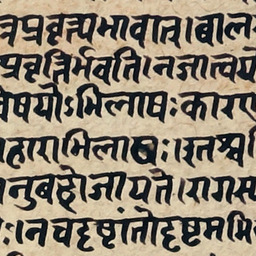 त्रप्रवृत्त्यभावात्।बाल
प्रवृत्तिर्भवति।नजात्वयो
वेषयोऽभिलाषःकारण
हाराभिलाषः।इतश्च
नुबद्धोजायते।रागस
ः।नचदृष्टांतोदृष्टमभि